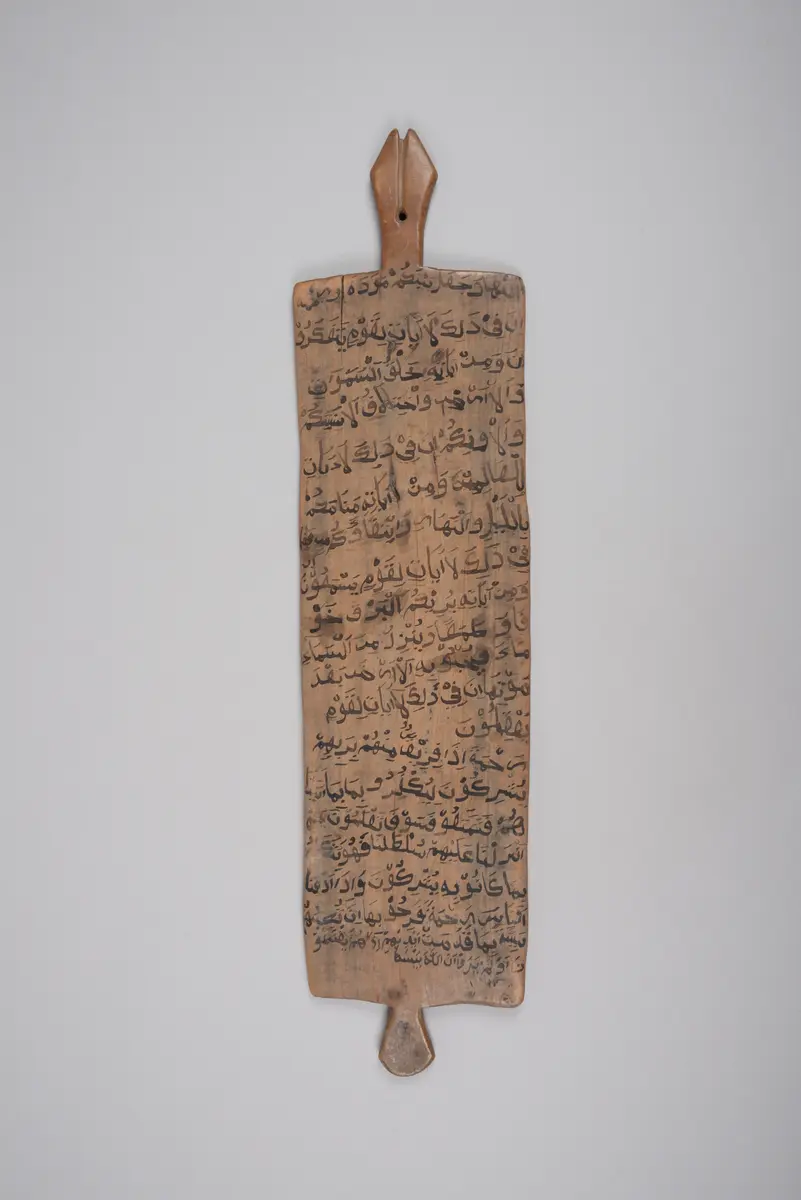 وَجَعَلَ بَيْنَكُمْ مَوَدَةً
اِنَ فِىْ ذَلِكَ لَاَيَاتٍ لِقَوْمٍ يَتَفَكَرُوْ
نَ وَمِنْ اَيَاتِهِ خَلْقُ السَّمَوَاتِ
وَالْاَرْضِ وَاخْتِلَافُ اَلْسِنَتِكُمْ
وَاَلْوَنِكُمْ اِنَ فِىْ ذَلِكَ لَاَيَاتٍ
لِلْعَالِمِيْنَ وَمِنْ اَيَاتِهِ مَنَامُكُمْ
بِالْلَيْلِ وَالنَهَارِ وَابْتِغَاؤُكُمْ
فِىْ ذَلِكَ لَاَيَاتٍ لِقَوْمٍ يَسْمَعُوْنَ
وَمِنْ اَيَاتِهِ يُرِيْكُمُ الْبَرْقَ خَوْ
فًا وَطَمَعًا وَيُنْزِلُ مِنَ السَّمَاءِ
مَاءً فَيُحْيِىْ بِهِ الْاَرْضَ بَعْدَ
مَوْتِهَا اِنَ فِىْ ذَلِكَ لَاَيَاتٍ لِقَوْمٍ
يَعْقِلُوْنَ
رَحْمَةً اِذَا فَرِيْقٌ مِنْهُمْ بِرَبِهِمْ
يُشْرِكُوْنَ لِيَكْفُرُو بِمَا
هُمْ فَتَمَتَعُوْ فَسَوْفَ تَعْلَمُوْنَ
اَنْزَلْنَا عَلَيْهِمْ سُلْطَنًا فَهُوَ
بِمَا كَانُوْ بِهِ يُشْرِكُوْنَ وَاِذَا اَذَقْنَا
النَاسَ رَحْمَةً فَرِحُوْ بِهَا وَاِنْ تُصِبْهُمْ
سَيِئَةٌ بِمَا قَدَمَتْ اَيْدِيْهِمْ اِذَا هُمْ يَقْنَطُوْ
نَ اَوَلَمْ يَرَوْ اَنَ اللهَ يَبْسُطُ